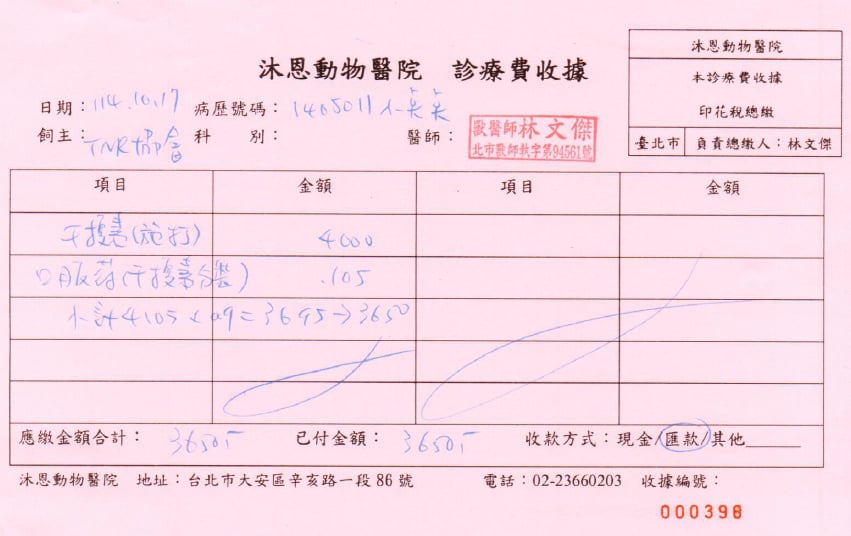 沐恩動物醫院 診療費收據
沐恩動物醫院
本診療費收據
印花稅總繳
臺北市 負責總繳人：林文傑
日期：114.10.17 病歷號碼：1405011 小吳吳
飼主：TNR協會 科 別： 醫師：
獸醫師林文傑
北市獸師執字第94561號
項目 金額 項目 金額
干擾素(施打) 4000
口服葯(干擾素分裝) 105
小計4105×0.9=3695→3650
應繳金額合計： 3650 已付金額： 3650 收款方式：現金/匯款/其他
沐恩動物醫院 地址：台北市大安區辛亥路一段86號 電話：02-23660203 收據編號：
000398